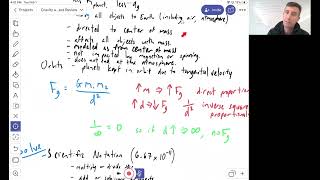 Projects - Gravity - and Review
planet, less 4g
all objects to Earth (including air, atmosphere)
- directed to center of mass
- affects all objects with mass.
- modeled as from center of mass
- not impacted by magnetism or spinning.
- does not end at the atmosphere.
Orbits - planets kept in orbit due to tangential velocity
Fg = G m₁ m₂ / d²
↑ m ⇒ ↑ Fg direct proportion
↑ d ⇒ ↓ Fg 1/d² inverse square proportional
1/∞ = 0 so if d ↑ ∞, no Fg
- Scientific Notation (6.67 x 10⁻¹¹)
- multiply or divide
- add or